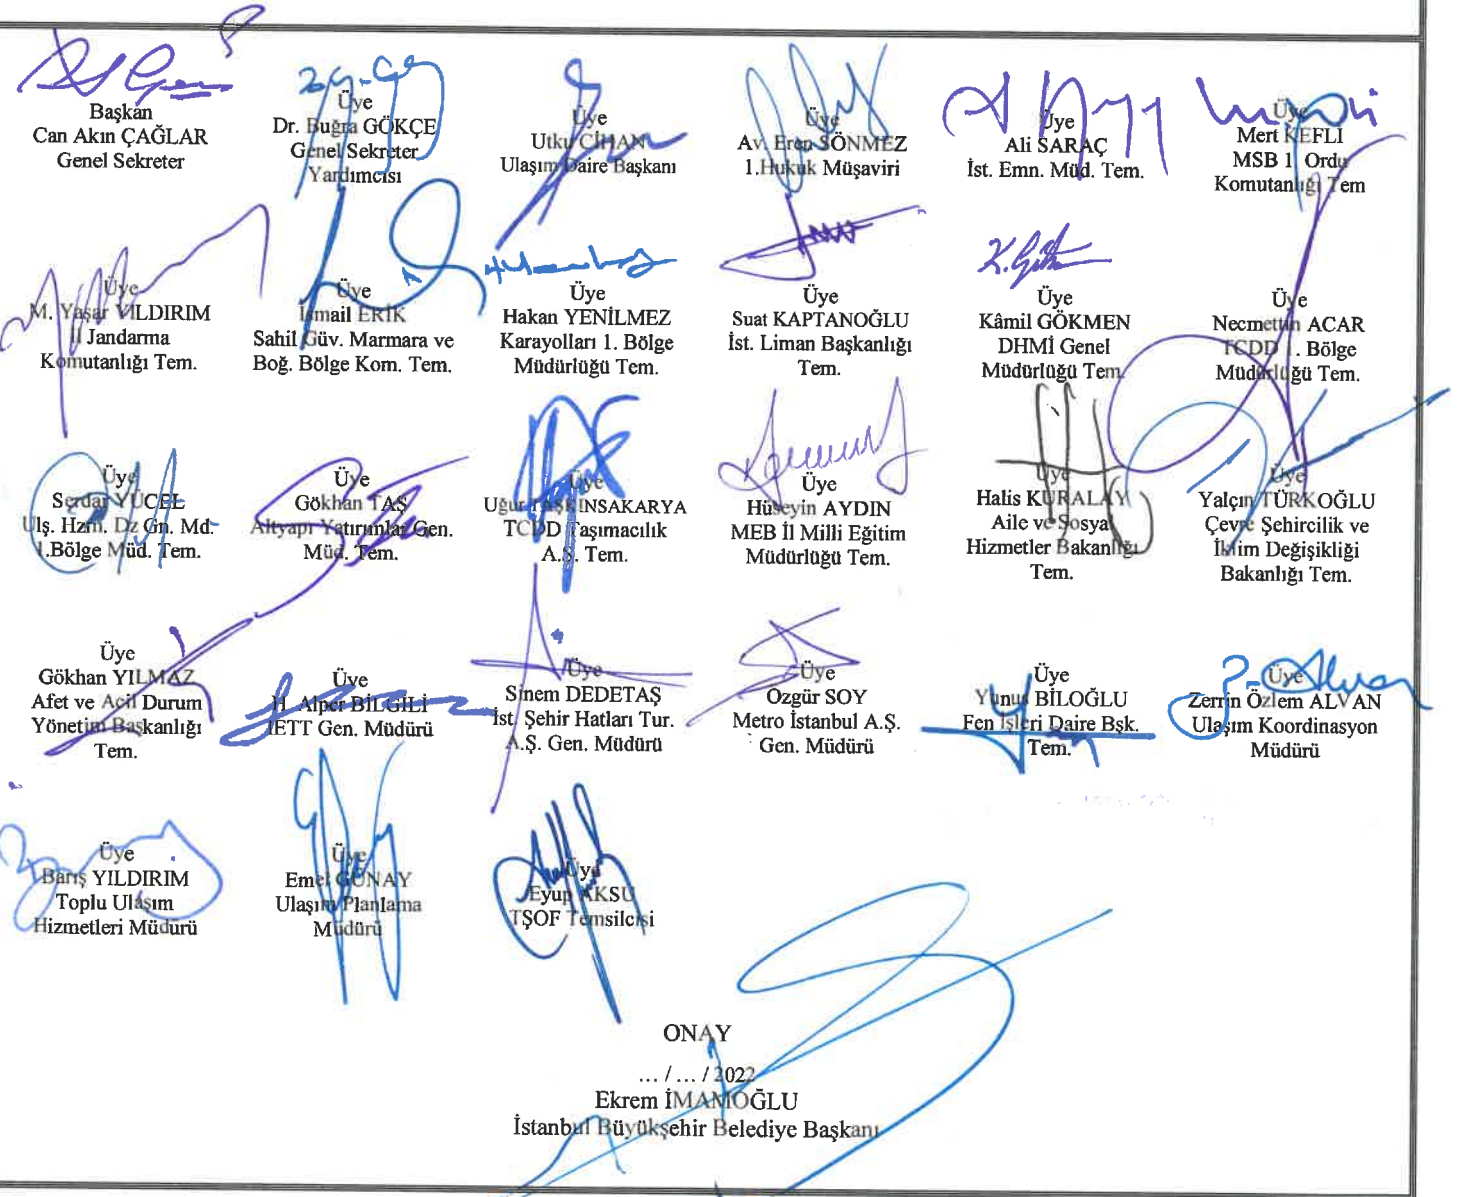 Başkan
Can Akın ÇAĞLAR
Genel Sekreter
Üye
Dr. Buğra GÖKÇE
Genel Sekreter
Yardımcısı
Üye
Utku CİHAN
Ulaşım Daire Başkanı
Üye
Av. Eren SÖNMEZ
1.Hukuk Müşaviri
Üye
Ali SARAÇ
İst. Emn. Müd. Tem.
Üye
Mert KEFLİ
MSB 1. Ordu
Komutanlığı Tem
Üye
M. Yaşar YILDIRIM
İl Jandarma
Komutanlığı Tem.
Üye
İsmail ERİK
Sahil Güv. Marmara ve
Boğ. Bölge Kom. Tem.
Üye
Hakan YENİLMEZ
Karayolları 1. Bölge
Müdürlüğü Tem.
Üye
Suat KAPTANOĞLU
İst. Liman Başkanlığı
Tem.
K. Gök
Üye
Kâmil GÖKMEN
DHMİ Genel
Müdürlüğü Tem.
Üye
Necmettin ACAR
TCDD 1. Bölge
Müdürlüğü Tem.
Üye
Serdar YÜCEL
Ulş. Hzm. Dz Gn. Md.
1.Bölge Müd. Tem.
Üye
Gökhan TAŞ
Altyapı Yatırımlar Gen.
Müd. Tem.
Üye
Uğur TAŞKINSAKARYA
TCDD Taşımacılık
A.Ş. Tem.
Üye
Hüseyin AYDIN
MEB İl Milli Eğitim
Müdürlüğü Tem.
Üye
Halis KURALAY
Aile ve Sosyal
Hizmetler Bakanlığı
Tem.
Üye
Yalçın TÜRKOĞLU
Çevre Şehircilik ve
İklim Değişikliği
Bakanlığı Tem.
Üye
Gökhan YILMAZ
Afet ve Acil Durum
Yönetim Başkanlığı
Tem.
Üye
H. Alper BİLGİLİ
İETT Gen. Müdürü
Üye
Sinem DEDETAŞ
İst. Şehir Hatları Tur.
A.Ş. Gen. Müdürü
Üye
Özgür SOY
Metro İstanbul A.Ş.
Gen. Müdürü
Üye
Yunus BİLOĞLU
Fen İşleri Daire Bşk.
Tem.
Üye
Zerrin Özlem ALVAN
Ulaşım Koordinasyon
Müdürü
Üye
Barış YILDIRIM
Toplu Ulaşım
Hizmetleri Müdürü
Üye
Emel GÜNAY
Ulaşım Planlama
Müdürü
Üye
Eyup AKSU
TŞOF Temsilcisi
ONAY
... / ... / 2022
Ekrem İMAMOĞLU
İstanbul Büyükşehir Belediye Başkanı